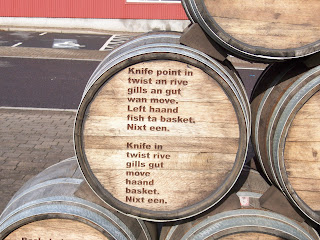 Knife point in
twist an rive
gills an gut
wan move.
Left haand
fish ta basket.
Nixt een.
Knife in
twist rive
gills gut
move
haand
basket.
Nixt een.